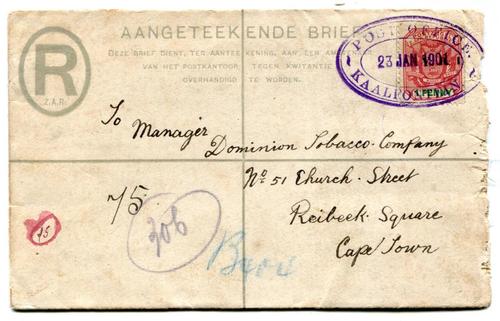 AANGETEEKENDE BRIEF
DEZE BRIEF DIENT, TER AANTEEKENING, AAN EEN
VAN HET POSTKANTOOR, TEGEN KWITANTIE
OVERHANDIGD TE WORDEN.
R
Z.A.R.
POST OFFICE.
23 JAN 1901
1 PENNY
To Manager
Dominion Tobacco Company
No 51 Church Street
Reibeek Square
Cape Town
75
306
75